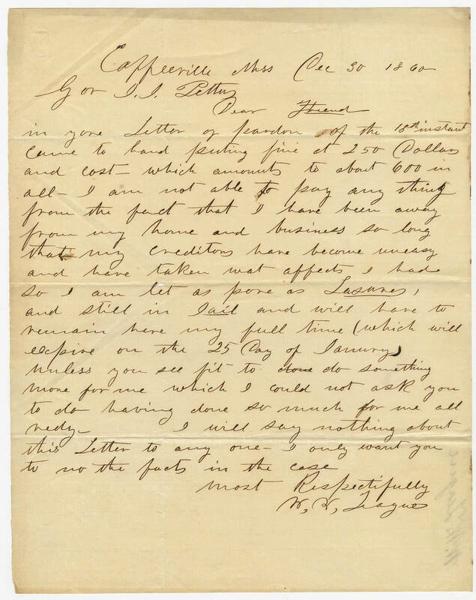 Coffeeville Miss Dec 30 1860
Gov J. J. Pettus
Dear Friend
in yore Letter of pardon of the 18th instant
came to hand puting fine at 250 Dollars
and cost – which amounts to about 600 in
all – I am not able to pay any thing
from the fact that I have been away
from my home and business so long
that my creditors have become uneasy
and have taken wat affects I had
so I am let as pore as Lasures,
and still in Jail and will have to
remain have my full time (which will
expire on the 25 Day of Janury)
unless you see fit to done do something
more for me which I could not ask you
to do having done so much for me all
redy – I will say nothing about
this Letter to any one – I only want you
to no the facts in the case
most Respectifully
W. W. Teague